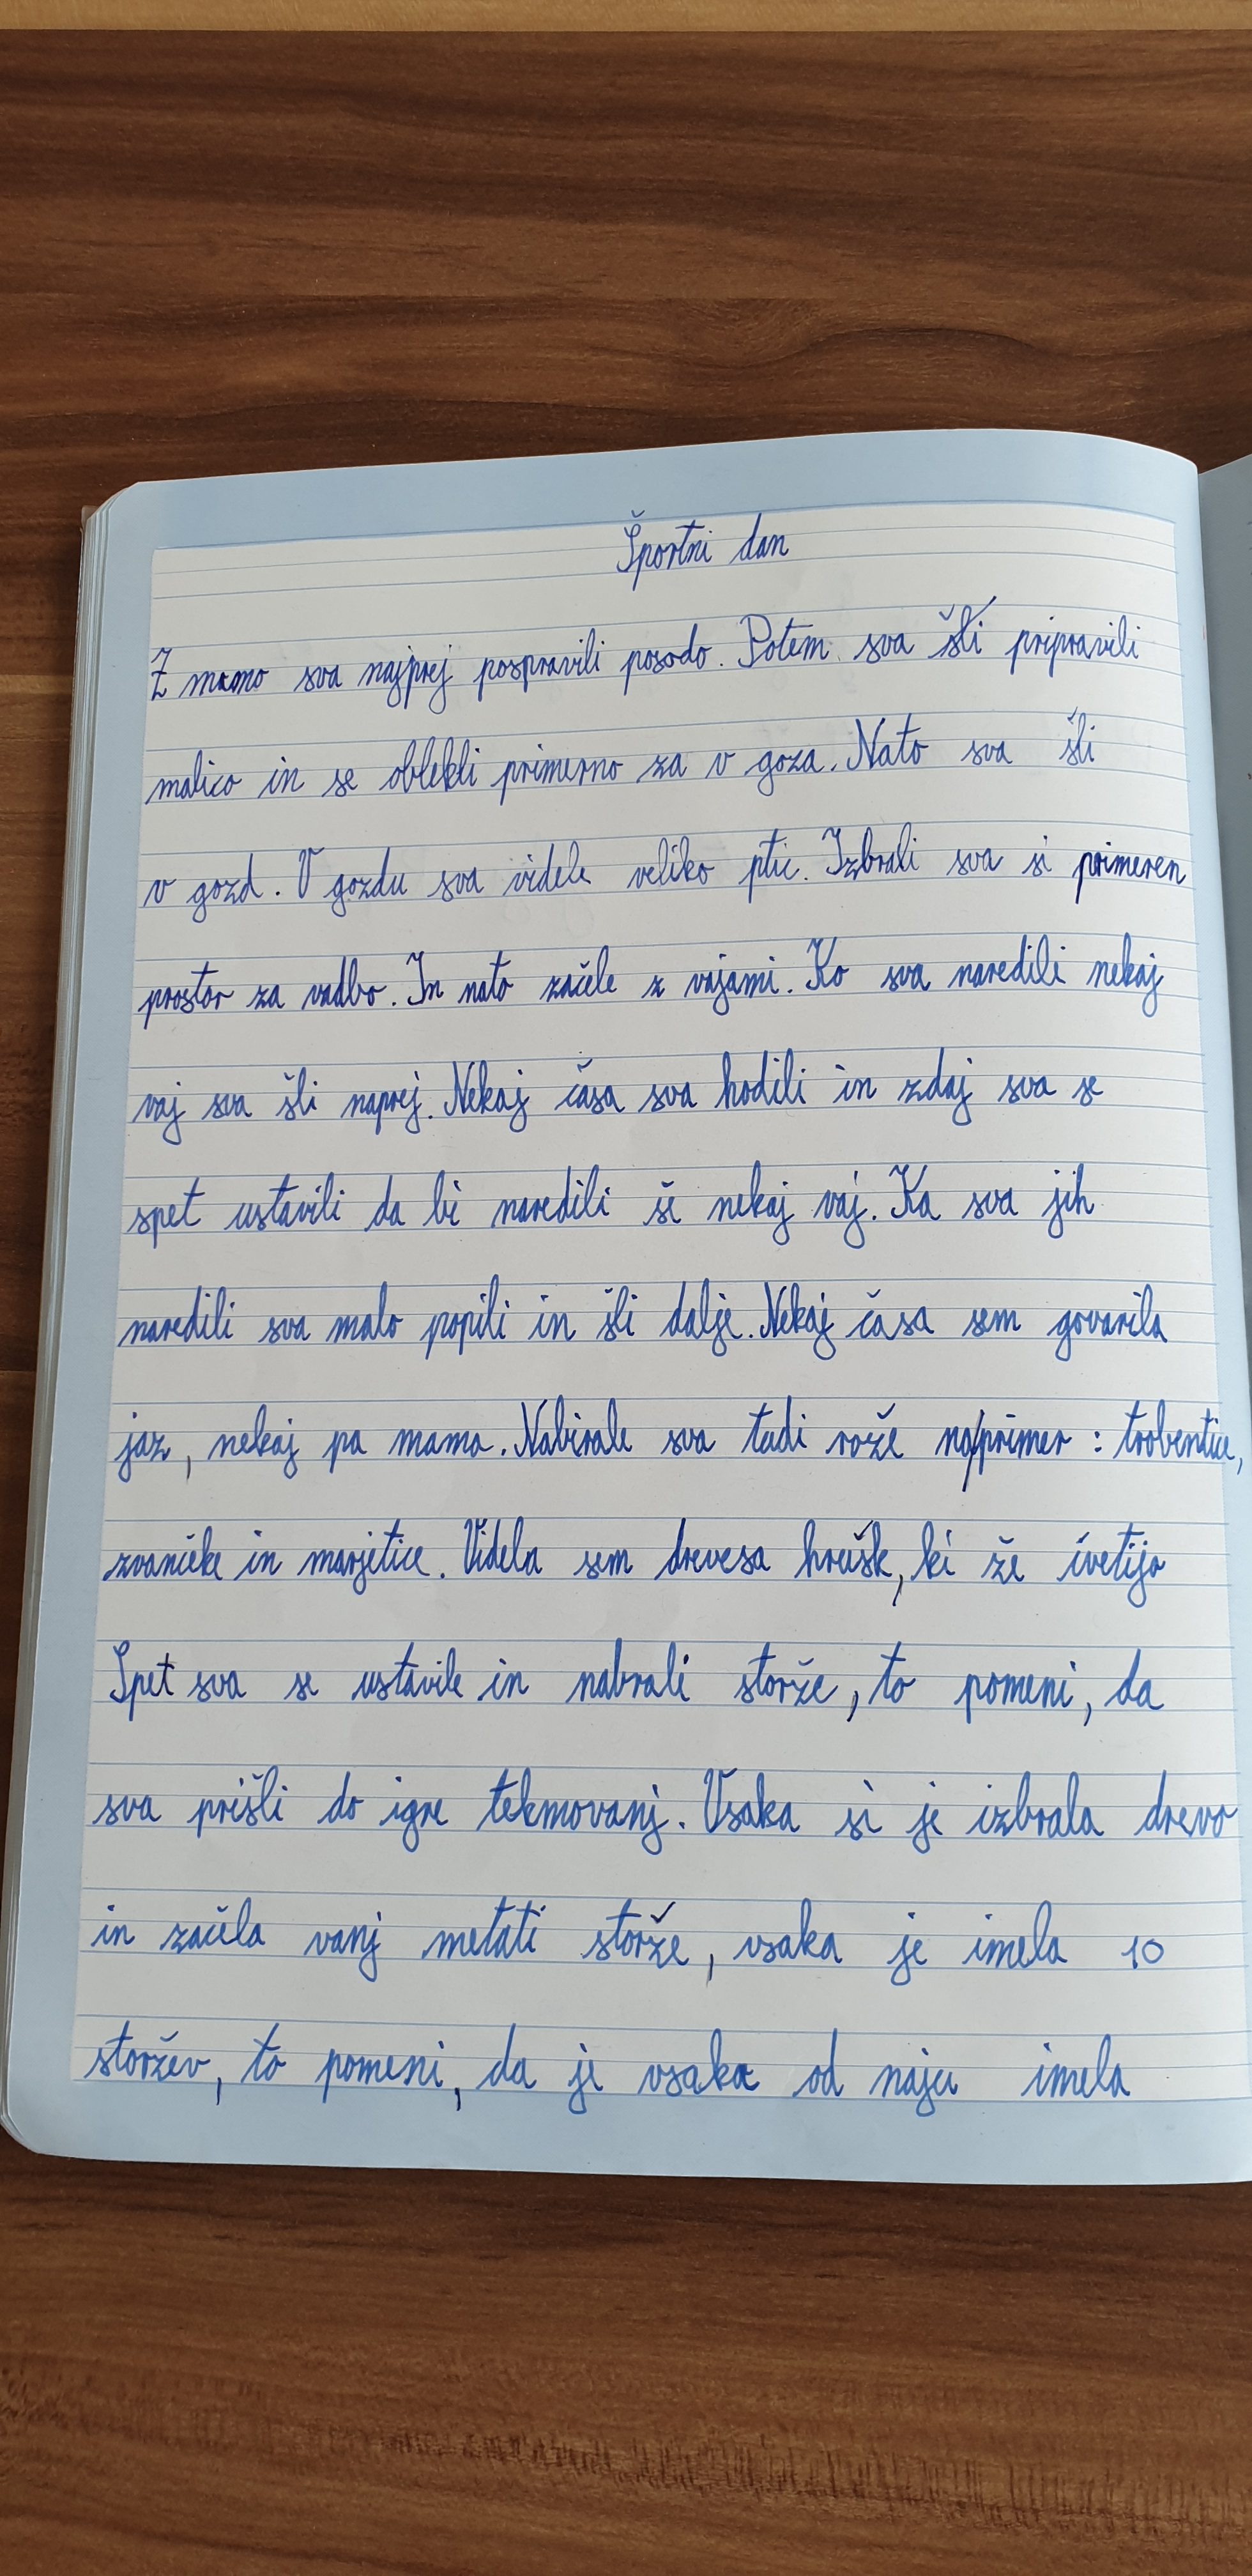 Športni dan
Z mamo sva najprej pospravili posodo. Potem sva šli pripravili
malico in se oblekli primerno za v goza. Nato sva šli
v gozd. V gozdu sva videle veliko ptic. Izbrali sva si primeren
prostor za vadbo. In nato začele z vajami. Ko sva naredili nekaj
vaj sva šli naprej. Nekaj časa sva hodili in zdaj sva se
spet ustavili da bi naredili še nekaj vaj. Ka sva jih
naredili sva malo popili in šli dalje. Nekaj časa sem govorila
jaz, nekaj pa mama. Nabirale sva tudi rože na/primer : trobentice,
zvončke in marjetice. Videla sem drevesa hrušk, ki že cvetijo
Spet sva se ustavile in nabrali storže, to pomeni, da
sva prišli do igre tekmovanj. Vsaka si je izbrala drevo
in začela vanj metati storže, vsaka je imela 10
storžev, to pomeni, da je vsaka od naju imela